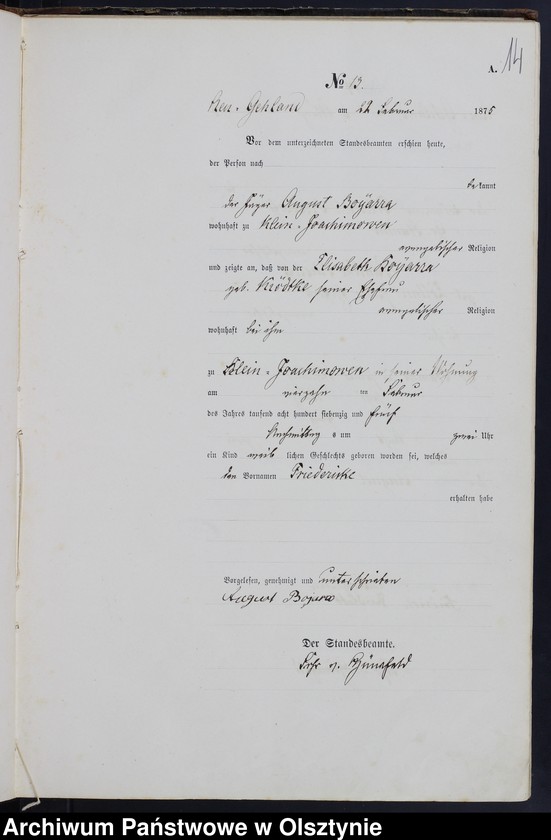 14
A.
No 13.
Neu-Gehland am 22 Februar 1875
Vor dem unterzeichneten Standesbeamten erschien heute,
der Person nach
bekannt
der August Boÿarra
wohnhaft zu Klein-Joachimowen
evangelischer Religion
und zeigte an, daß von der Elisabeth Boÿarra
geb. Krödtke seiner Ehefrau
evangelischer Religion
wohnhaft bei ihm
zu Klein-Joachimowen in seiner Wohnung
am vierzehn ten Februar
des Jahres tausend acht hundert siebenzig und fünf
Nachmittag s um zwei Uhr
ein Kind weib lichen Geschlechts geboren worden sei, welches
den Vornamen Friederike
erhalten habe
Vorgelesen, genehmigt und unterschrieben
August Boyarra
Der Standesbeamte.
Frhr v.
Archiwum Państwowe w Olsztynie